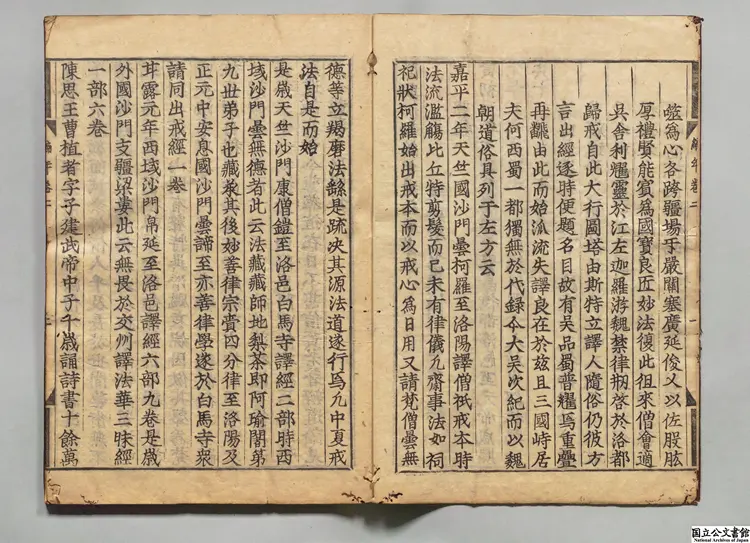 為心各跨疆場于嚴關塞廣延俊乂以佐股肱
厚禮賢能賓為國寶良匠妙法復此徂來僧會適
吳舍利耀靈於江左迦羅游魏禁律炳啓於洛都
歸戒自此大行圖塔由斯特立譯人隨俗仍彼方
言出經逐時便題名目故有吳品蜀普耀為重疊
再飜由此而始派流失譯良在於兹且三國峙居
夫何西蜀一都獨無於代録今大吳次紀而以魏
朝道俗具列于左方云
嘉平二年天竺國沙門曇柯羅至洛陽譯僧祇戒本時
法流濫觴比丘特剪髮而已未有律儀凢齋事法如祠
祀狀柯羅始出戒本而以戒心為日用又請梵僧曇無
德等立羯磨法繇是疏决其源法道遂行焉凢中夏戒
法自是而始
是歳天竺沙門康僧鎧至洛邑白馬寺譯經二部時西
域沙門曇無德者此云法藏藏師地梨茶即阿瑜闍第
九世弟子也藏承其後妙善律宗賫四分律至洛陽及
正元中安息國沙門曇諦至亦善律學遂於白馬寺衆
請同出戒經一卷
甘露元年西域沙門帛延至洛邑譯經六部九卷是歳
外國沙門支疆梁婁此云無畏於交州譯法華三昧經
一部六卷
陳思王曹植者字子建武帝中子十歳誦詩書十餘萬
編年卷二
国立公文書館
National Archives of Japan